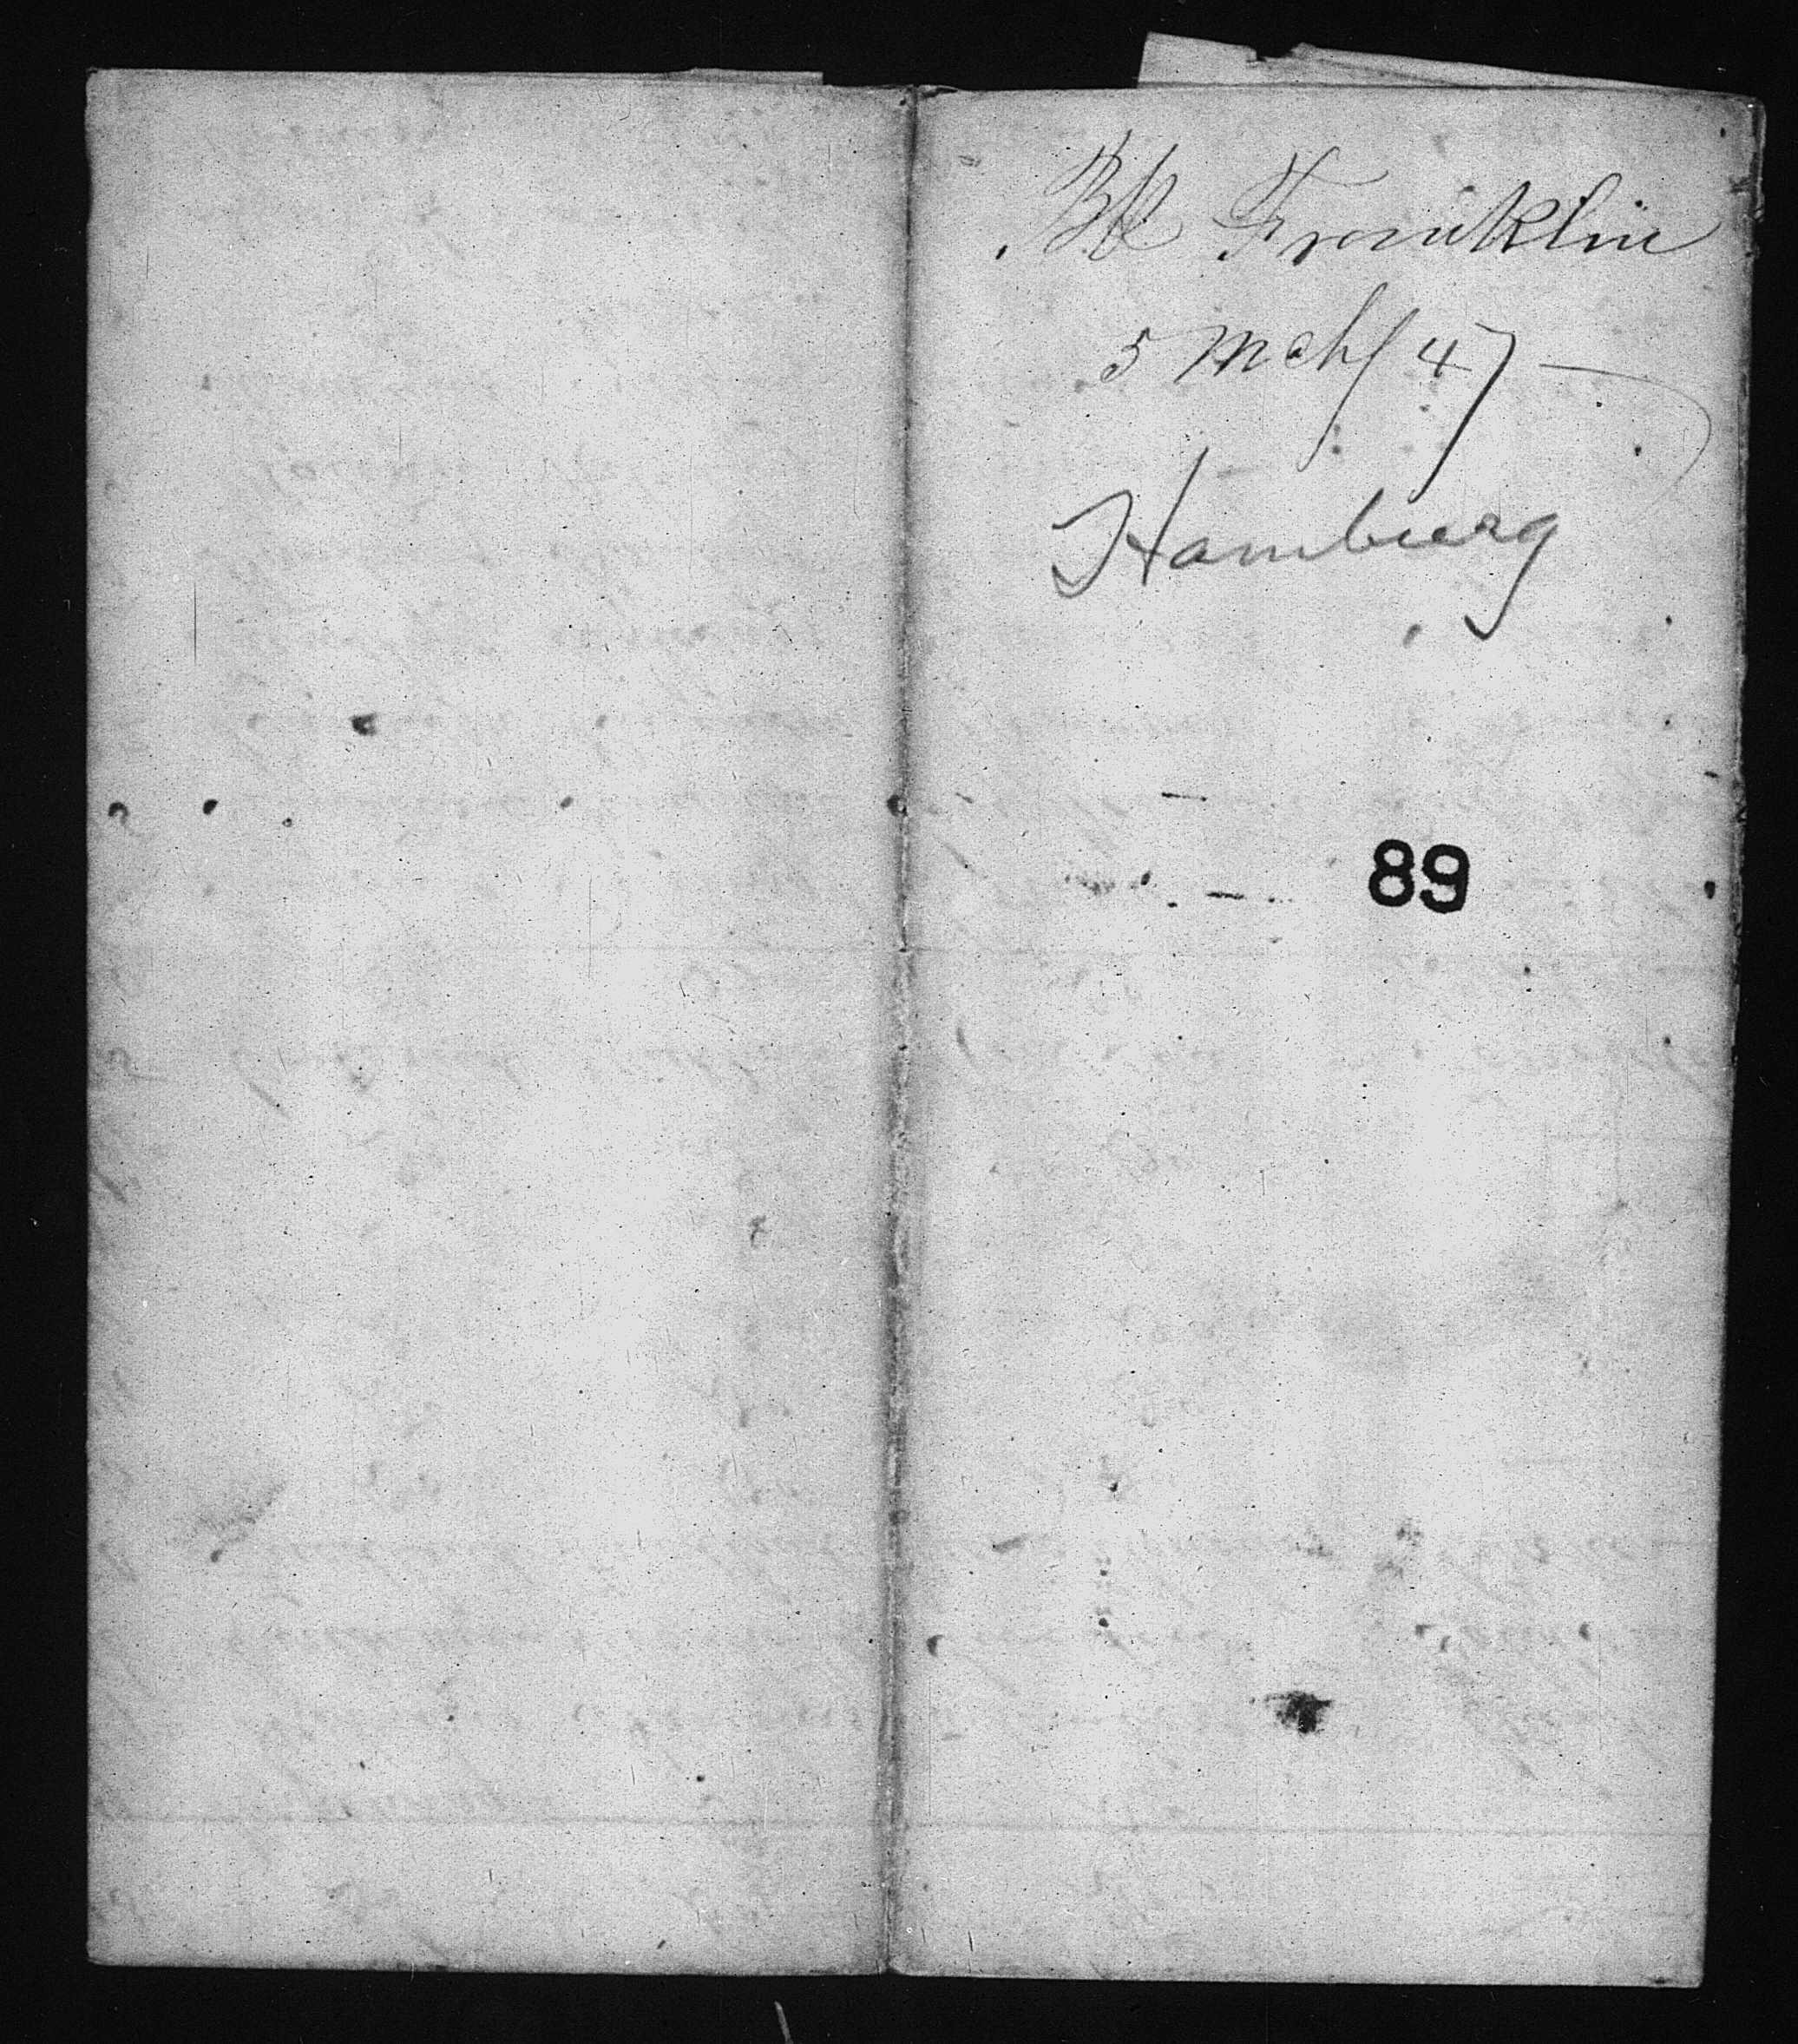 Bk Franklin
5 Mch/47
Hamburg
89